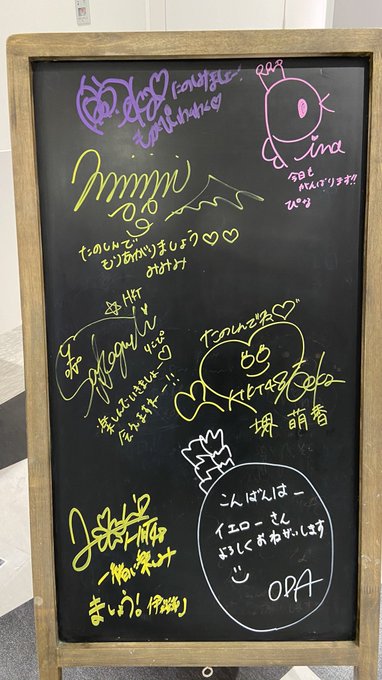 たのしみましょー!
ina
今日も
がんばります!!
ぴーな
minimi
たのしんで
もりあがりましょう♡♡
みなみ
☆HKT
りこぴ
楽しんでいきましょー♡
たのしんでね♡
HKT48
堺 萌香
HKT48
一緒に楽しみ
ましょう!
こんばんはー
イエローさん
よろしくおねがいします
OPA